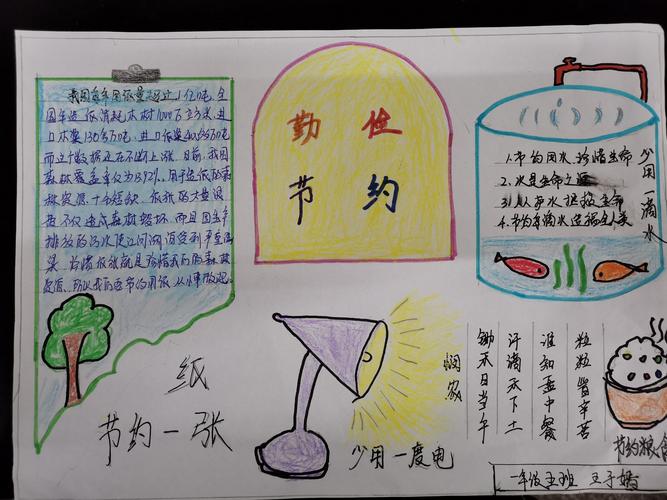 我国每年用纸量超过1亿吨,全
国年造纸消耗木材1000万立方米,进
口木浆130多万吨,进口纸浆400多万吨
而这个数据还在不断上涨.目前,我国
森林覆盖率仅为13.92%.用于造纸的森
林资源十分短缺.纸张的大量浪
费不仅造成森林毁坏,而且因生产
排放的污水使江河湖泊受到严重污
染
珍惜纸张就是珍惜我们的森林
资源.所以我们应节约用纸从小事做起.
纸
节约一张
勤俭
节约
1.节约用水,珍惜生命
2.水是生命之源
3.人人护水
生命
4.节约每滴水造福全人类
少用一滴水
少用一度电
悯农
锄禾日当午
汗滴禾下土
谁知盘中餐
粒粒皆辛苦
节约粮食
一年级五班 王子嫣